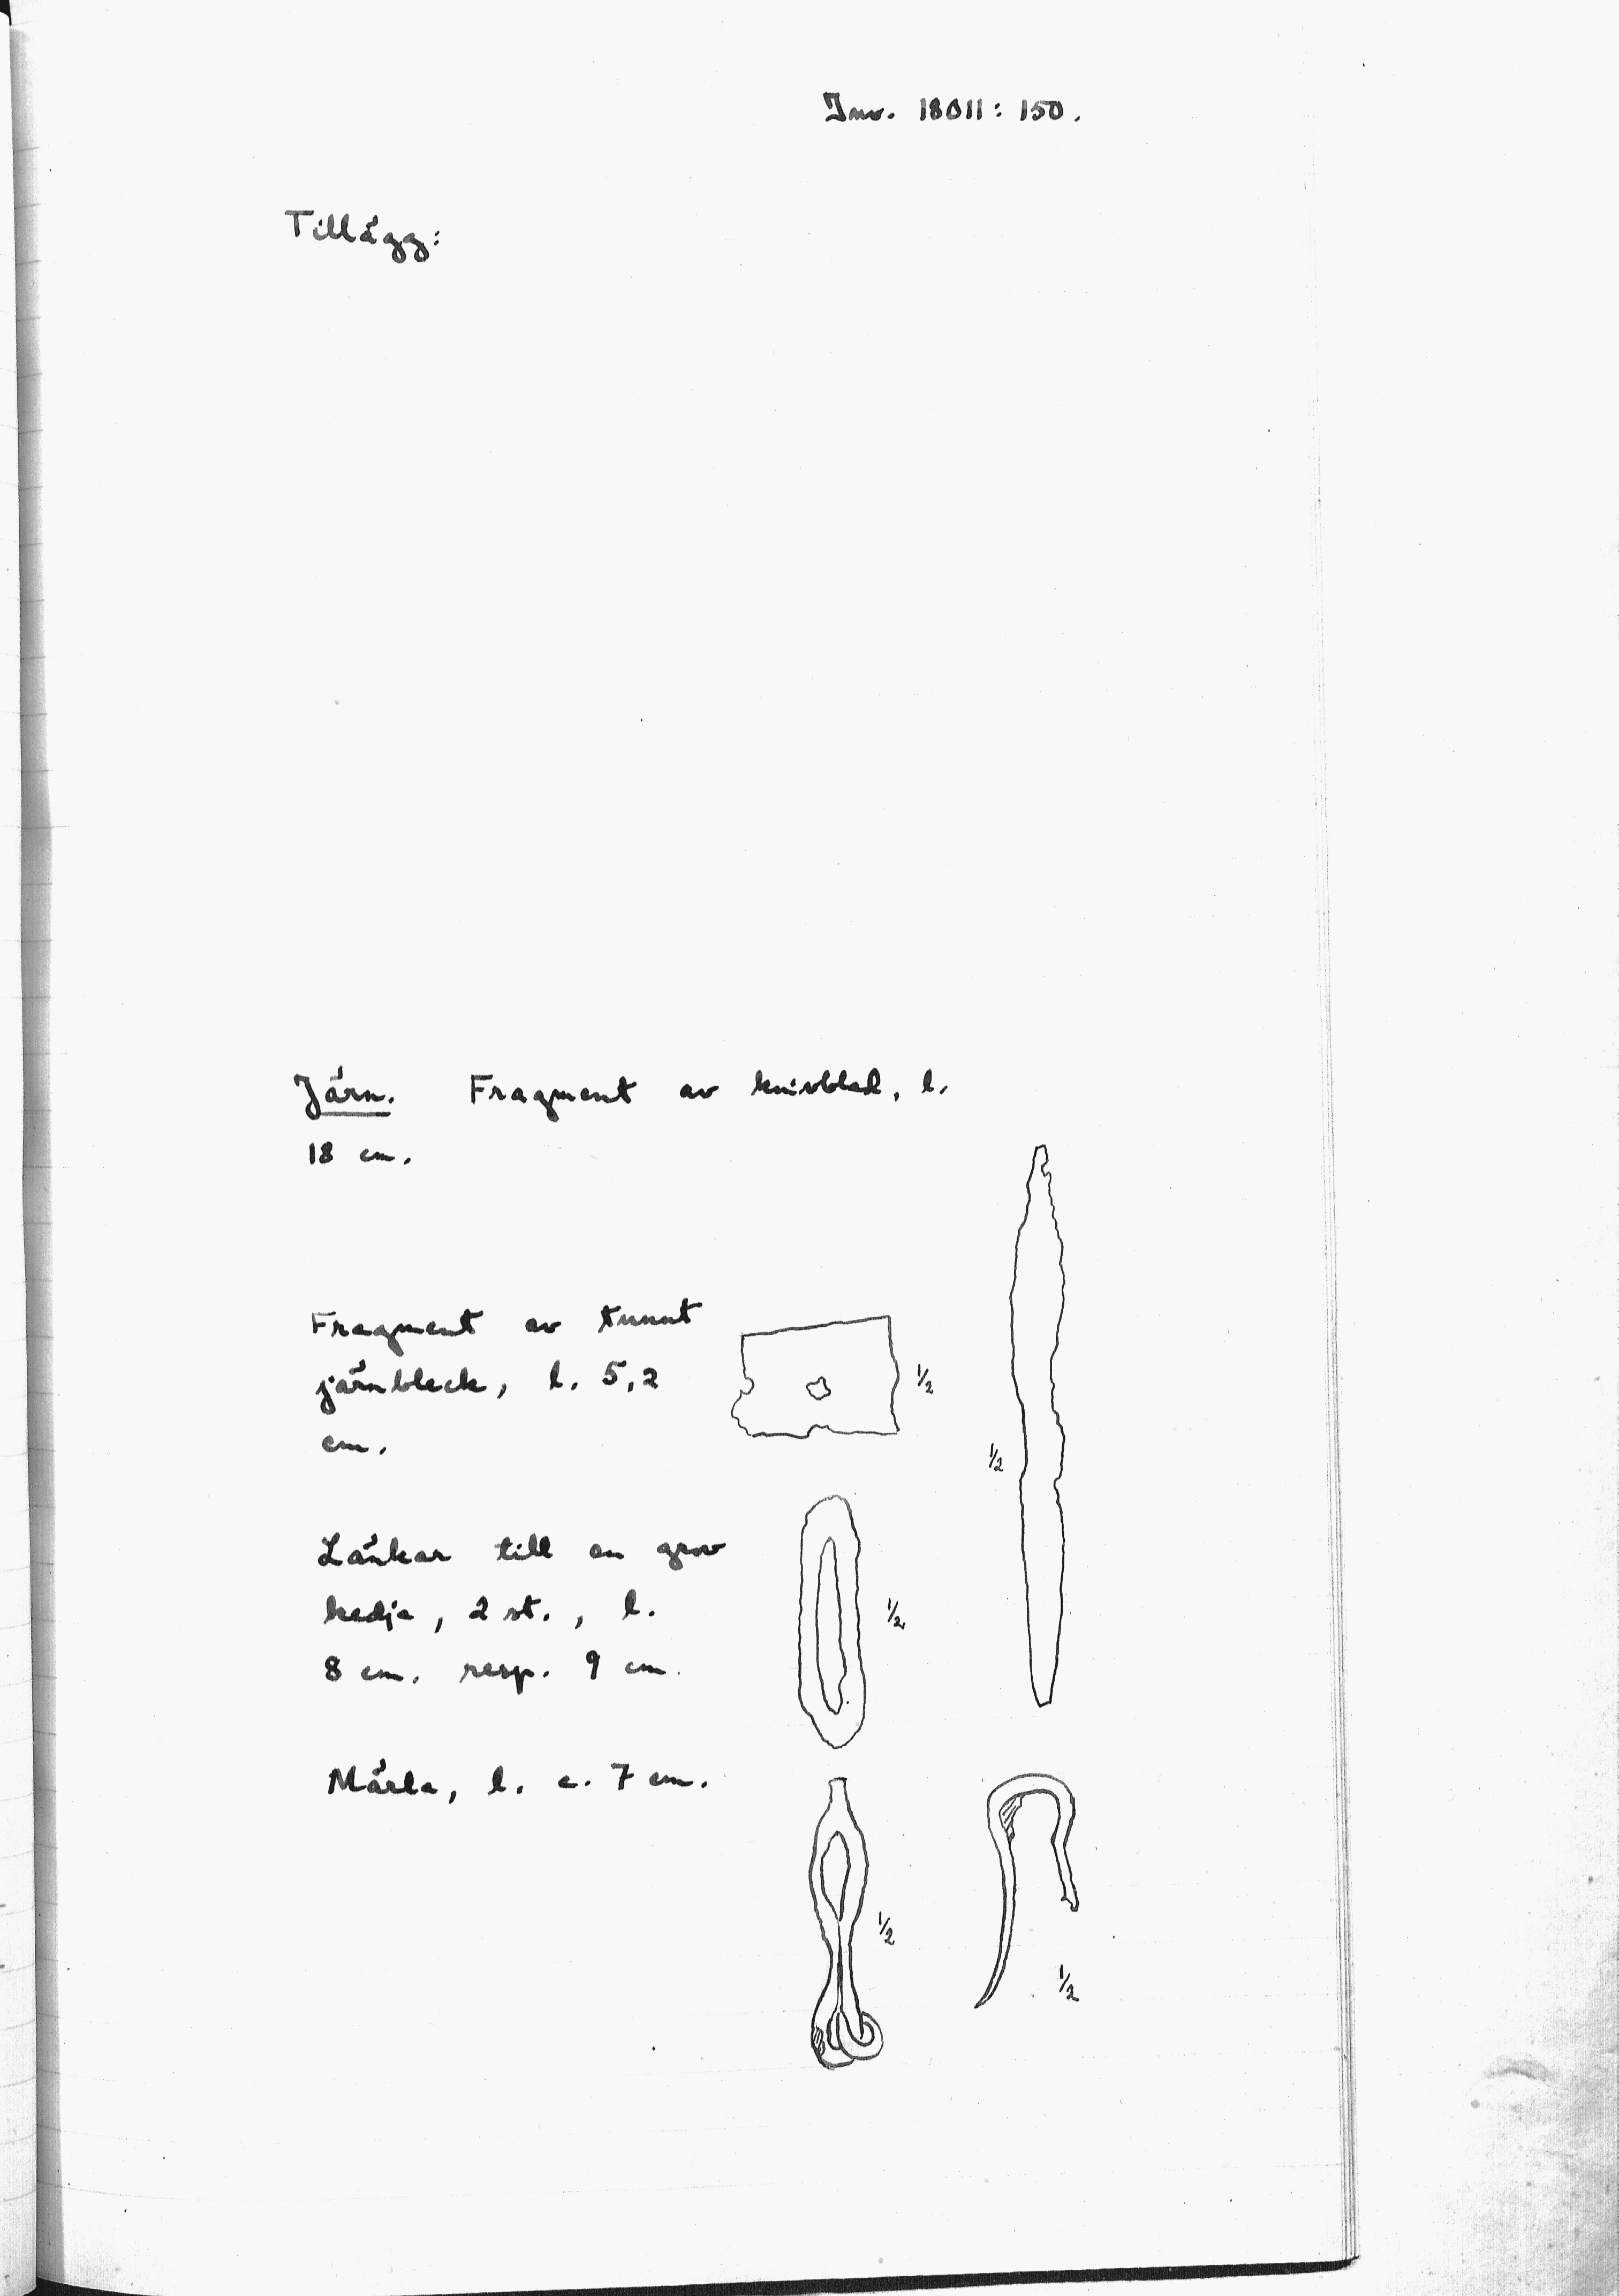 Inv. 18011: 150.
Tillägg:
Järn. Fragment av knivblad, l.
18 cm.
Fragment av tunnt
järnbleck, l. 5,2
cm.
1/2
1/2
Länkar till en grov
kedja, 2 st., l.
8 cm. resp. 9 cm.
1/2
Märla, l. c. 7 cm.
1/2
1/2